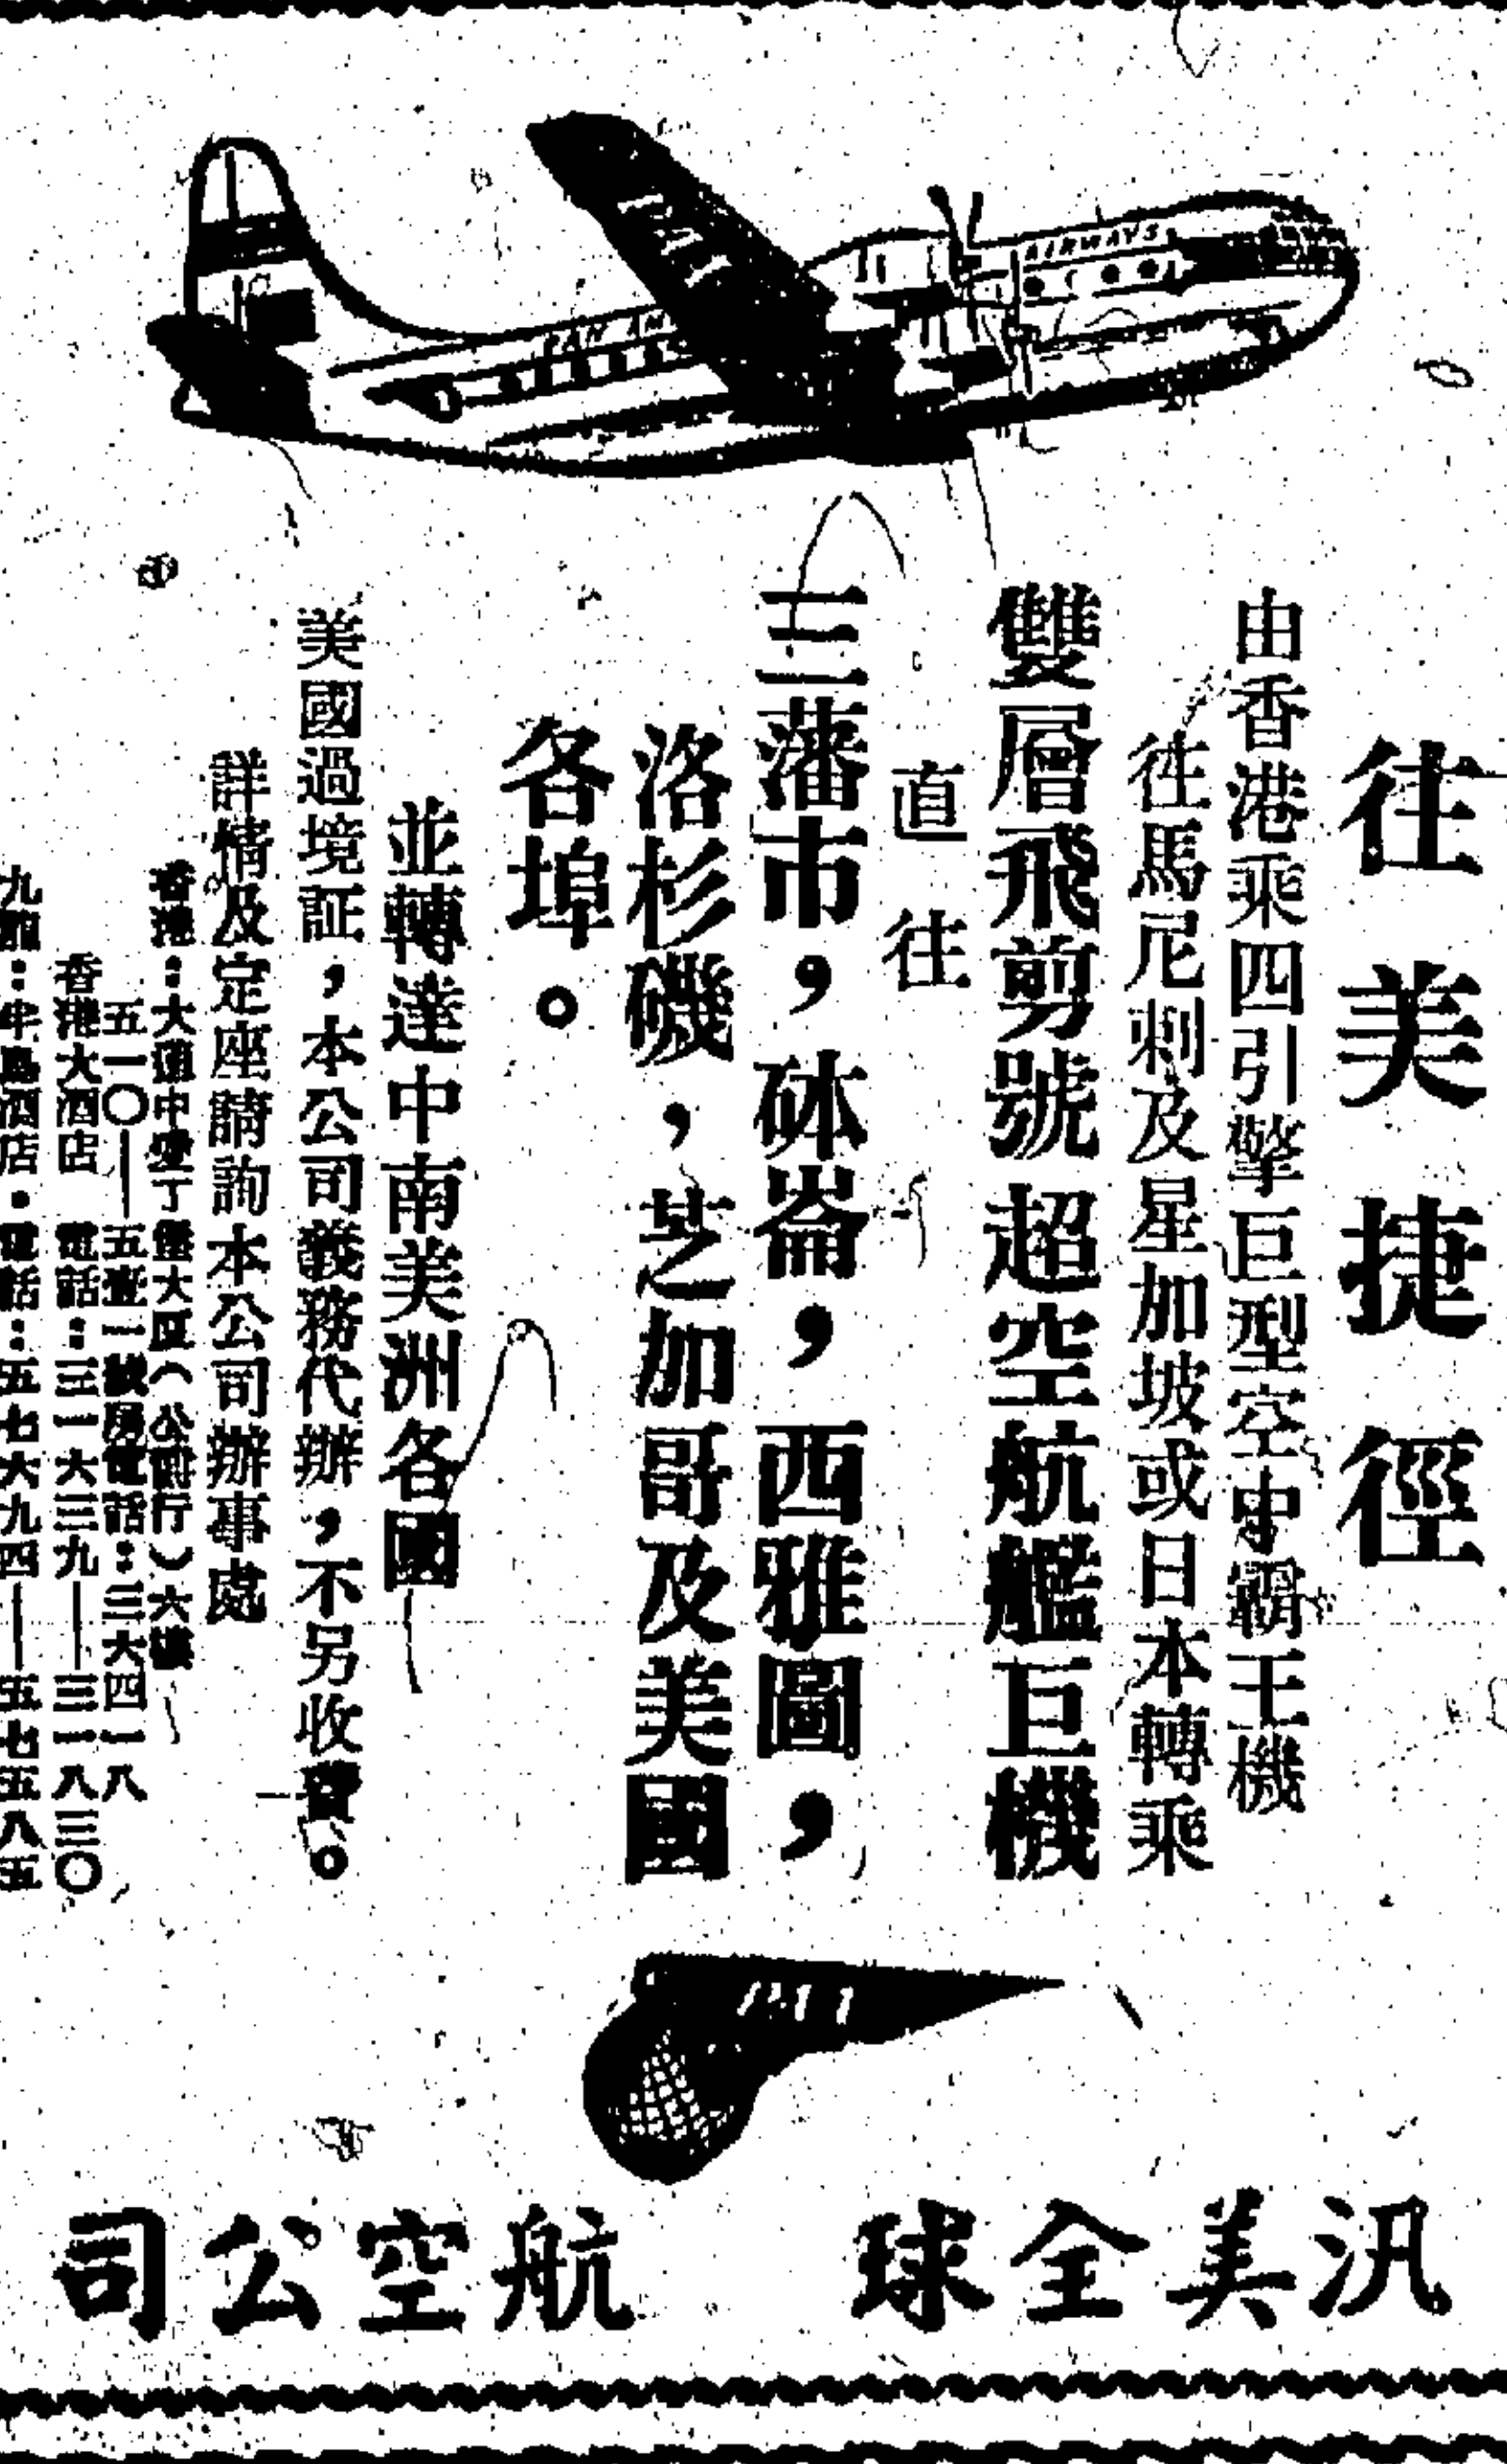 PAN AM
AIRWAYS
往美捷徑
由香港乘四引擎巨型空中霸王機
往馬尼刺及星加坡或日本轉乘
雙層飛剪號超空航艦巨機
直往
三藩市，砵崙，西雅圖，
洛杉磯，芝加哥及美國
各埠。
並轉達中南美洲各國
美國過境証，本公司義務代辦，不另收費。
詳情及定座請詢本公司辦事處
香港：大道中亞丁堡大厦（公爵行）六樓
五一〇——五壹一號房電話：三六四一八
香港大酒店 電話：三一六三九——三一八三〇
九龍：半島酒店·電話：五七六九四——五七五八五
汎美全球 航空公司